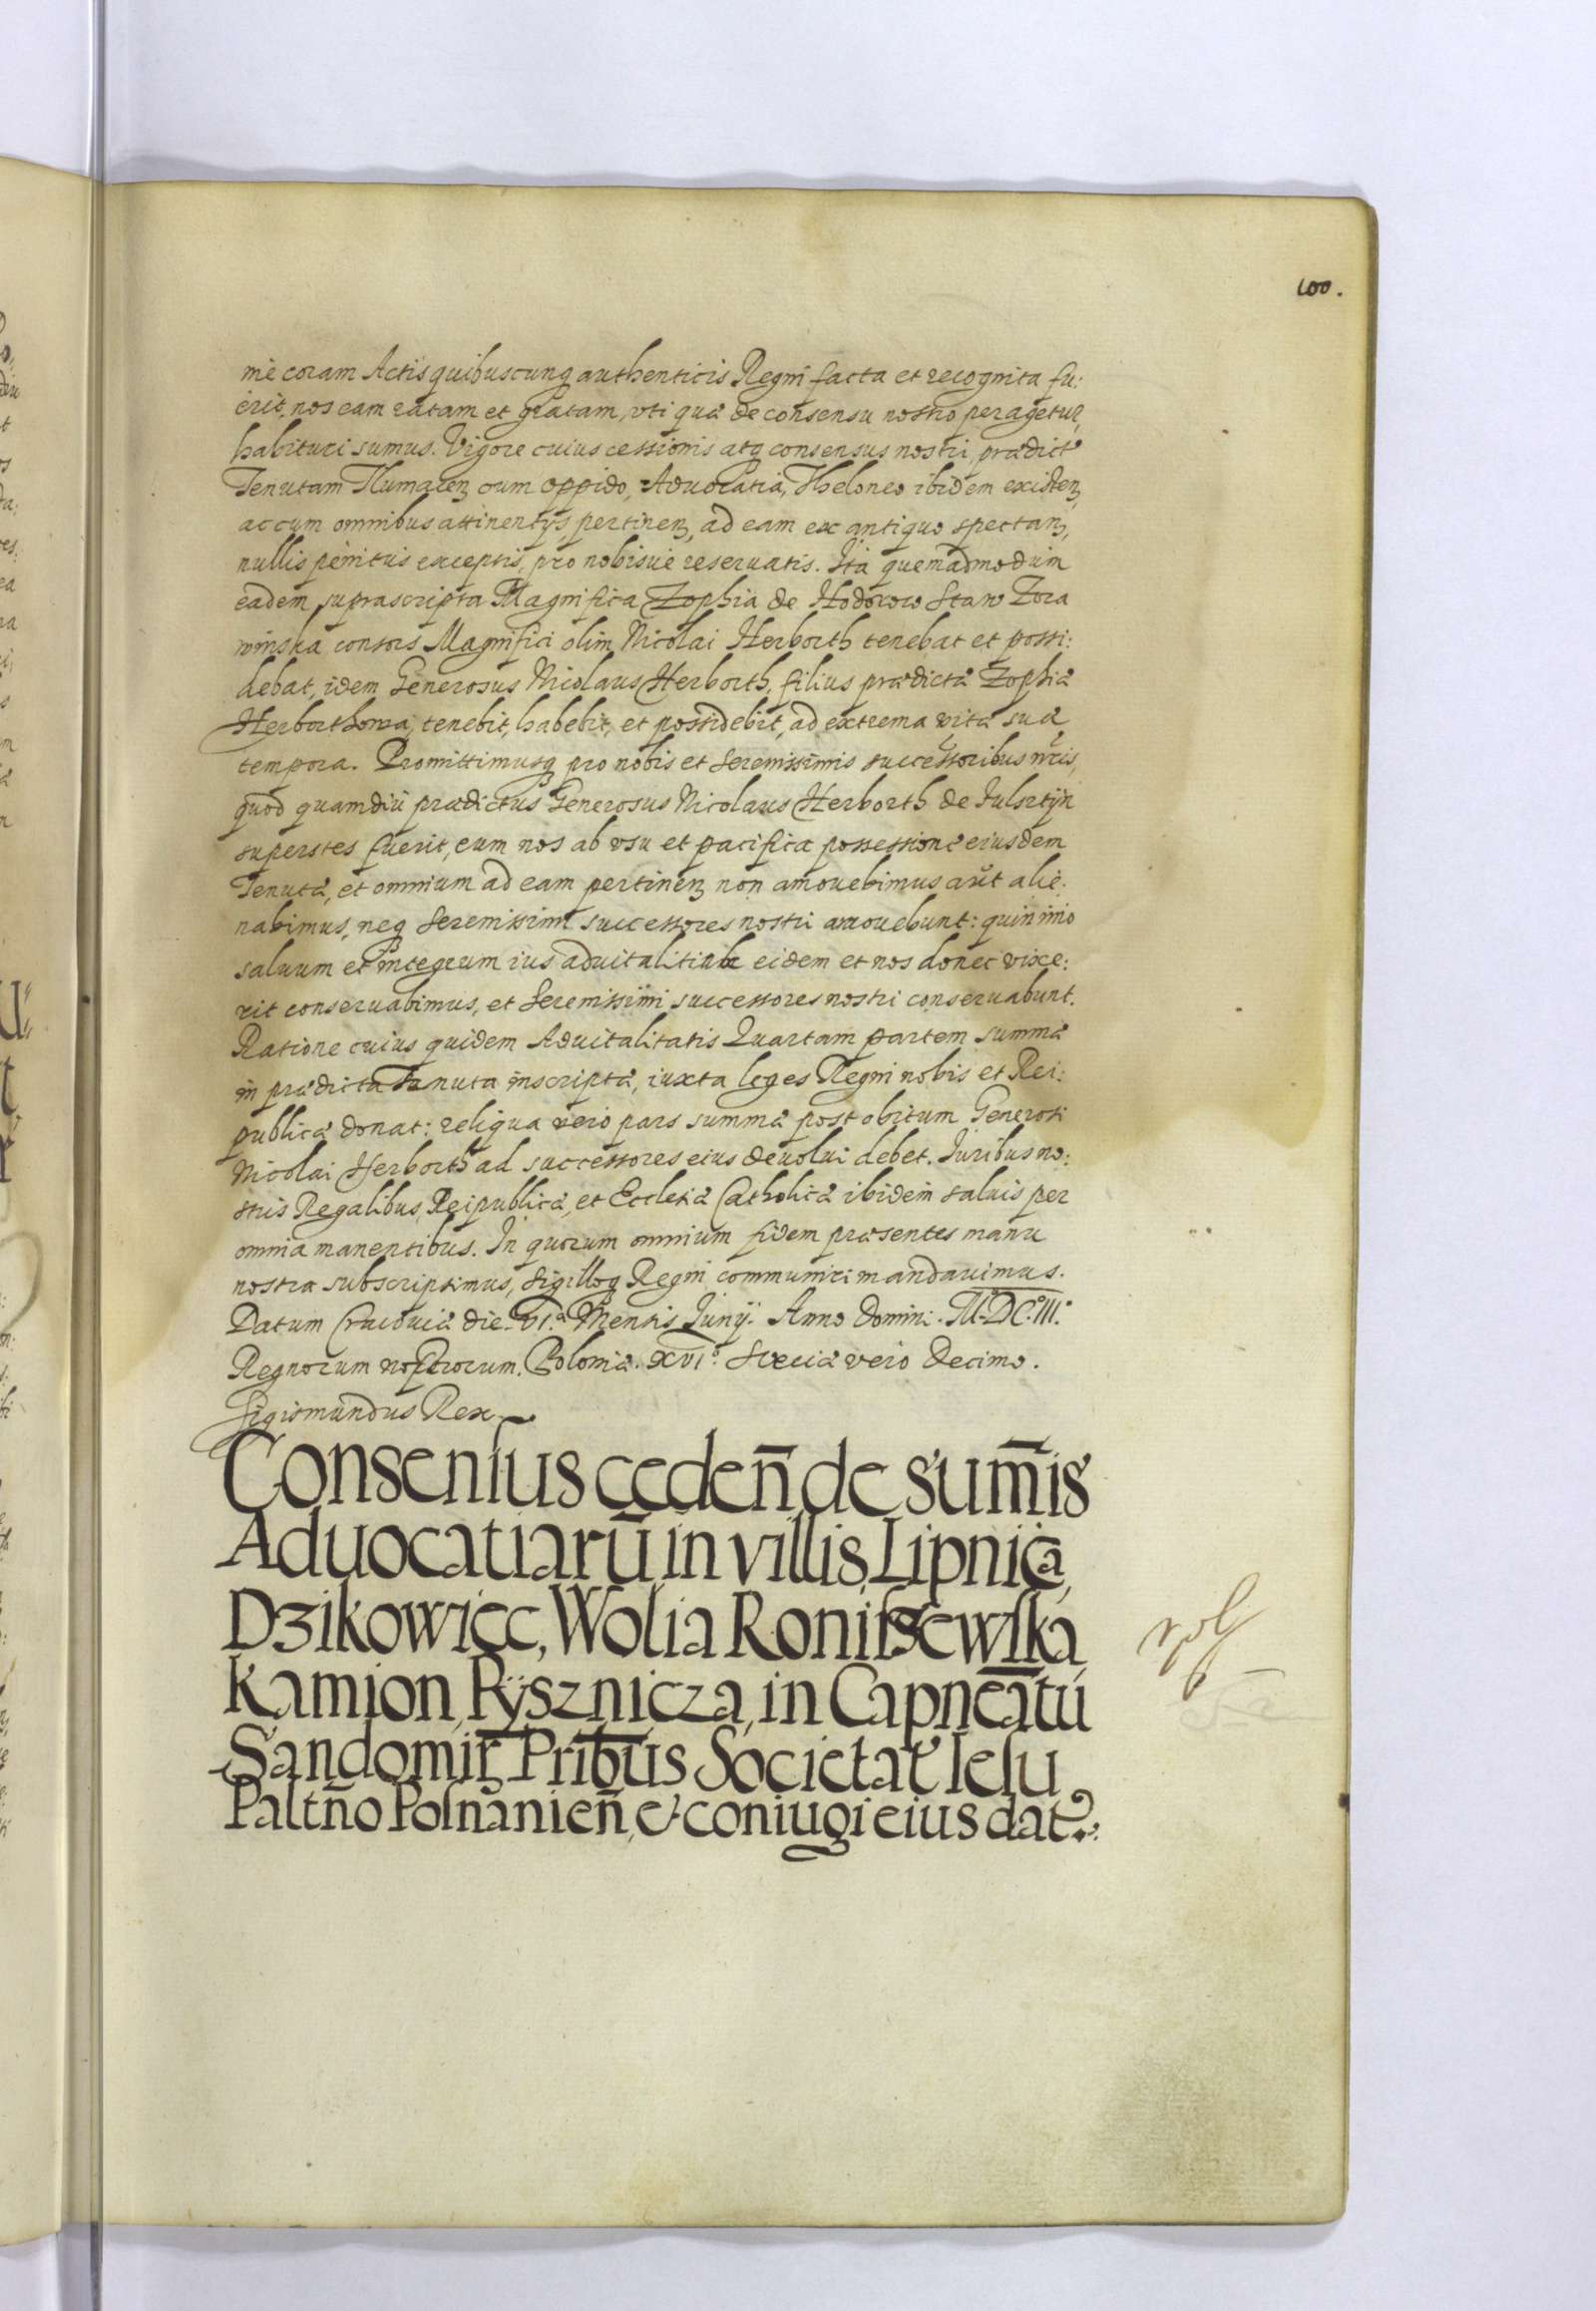 100.
me coram Actis quibuscunq authenticis Regni facta et recognita fu:
erit, nos eam ratam et gratam, vti quæ de consensu nostro peragetur,
habituri sumus. Vigore cuius cessionis atq consensus nostri, prædict
Tenutam Tlumacen cum oppido, Aduocatia, Theloneo ibidem existen,
ac cum omnibus attinentijs, pertinen, ad eam ex antiquo spectan,
nullis penitus exceptis, pro nobisue reseruatis. Ita quemadmodum
eadem suprascripta Magnifica Zophia de Hodorow Staw Zora
winska consors Magnifici olim Nicolai Herborth tenebat et possi:
debat, idem Generosus Nicolaus Herborth, filius prædictæ Zophiæ
Herborthowa, tenebit, habebit, et possidebit, ad extrema vitæ suæ
tempora. Promittimusq pro nobis et Serenissimis successoribus nris,
quod quamdiu prædictus Generosus Nicolaus Herborth de Fulsztijn
superstes fuerit, eum nos ab vsu et pacifica possessione eiusdem
Tenutæ, et omnium ad eam pertinen non amouebimus aut alie:
nabimus, neq Serenissimi successores nostri amouebunt: quinimo
saluum et integrum ius aduitalitium eidem et nos donec vixe:
rit conseruabimus, et Serenissimi successores nostri conseruabunt.
Ratione cuius quidem Aduitalitatis Quartam partem summæ
in prædicta Tenuta inscriptæ, iuxta leges Regni nobis et Rei:
publicæ donat: reliqua vero pars summæ post obitum Generosi
Nicolai Herborth ad successores eius deuolui debet. Iuribus no:
stris Regalibus, Reipublicæ, et Ecclesiæ Catholicæ ibidem saluis per
omnia manentibus. In quorum omnium fidem præsentes manu
nostra subscripsimus, Sigilloq Regni communiri mandauimus.
Datum Cracouiæ die VI.a Mensis Iunij. Anno Domini. M.DC.III.
Regnorum nostrorum. Poloniæ. XVI.o Sueciæ vero Decimo.
Sigismundus Rex
Consensus ceden̄ de sum̄is
Aduocatiarū in villis Lipnica,
Dzikowiec, Wolia Roniszewska
Kamion, Rÿsznicza, in Capneatu
Sandomir Pribus Societat Iesu
Paltn̄o Posnanien̄, & coniugi eius dat.